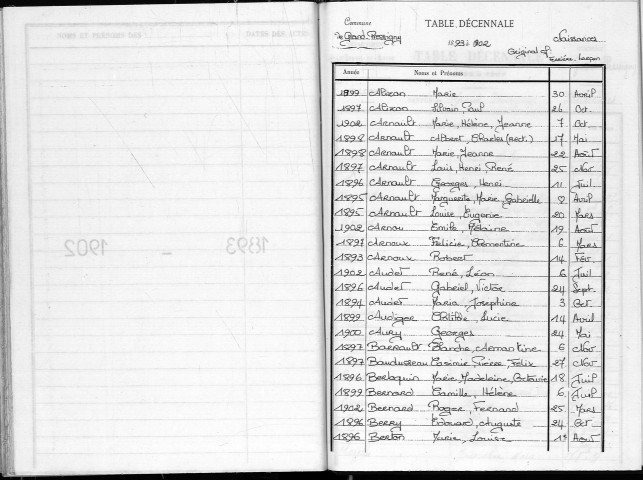 Commune
TABLE DÉCENNALE
de Grand-Pressigny
1893 à 1902
Naissances
Original
Année Noms et Prénoms
1899 Alizon Marie 30 Avril
1897 Alizon Silvain Paul 26 Oct.
1902 Arnault Marie, Hélène, Jeanne 7 Oct.
1898 Arnault Albert, Charles (rect.) 17 Mai
1898 Arnault Marie, Jeanne 22 Août
1897 Arnault Louis, Henri, René 25 Nov
1896 Arnault Georges, Henri 11 Juil.
1895 Arnault Marguerite, Marie, Gabrielle Avril
1895 Arnault Louise, Eugénie 20 Mars
1902 Arnou Emile 19 Août
1897 Arnoux Félicie, Clémentine 6 Mars
1893 Arnoux Robert 14 Fév.
1902 Audet René, Léon 6 Juil
1896 Audet Gabriel, Victor 24 Sept.
1894 Audet Maria, Josephine 3 Oct.
1899 Audiger Clotilde, Lucie 14 Avril
1900 Aury Georges 24 Mai
1897 Barrault Blanche, Armantine 6 Nov
1897 Baudusseau Casimir, Pierre, Félix 27 Nov
1896 Berloquin Marie, Madeleine, Octavie 18 Juil
1899 Bernard Camille, Hélène 6 Juil
1902 Bernard Roger, Fernand 25 Mars
1896 Berry Edouard, Auguste 24 Oct
1896 Berton Marie, Louise 1er Août
1902 - 1893